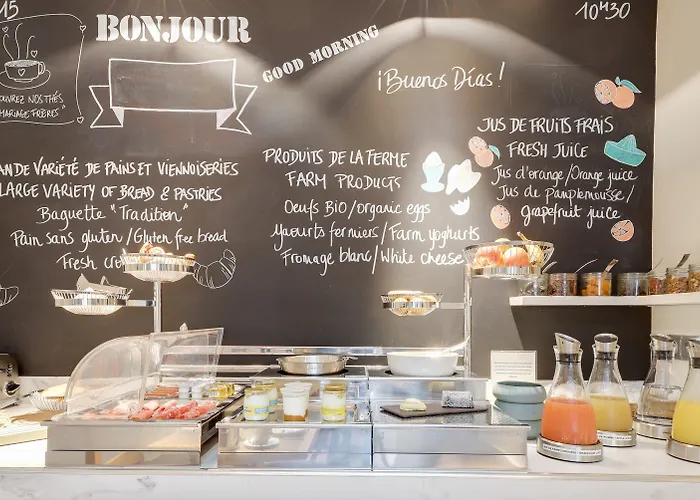 15
BONJOUR
GOOD MORNING
¡Buenos Días!
10H30
NOS THÉS
"MARIAGE FRÈRES"
DE VARIÉTÉ DE PAINS ET VIENNOISERIES
LARGE VARIETY OF BREAD & PASTRIES
Baguette "Tradition"
Pain sans gluten/Gluten free bread
Fresh
PRODUITS DE LA FERME
FARM PRODUCTS
Oeufs Bio/organic eggs
Yaourts fermiers/Farm yoghurts
Fromage blanc/White cheese
JUS DE FRUITS FRAIS
FRESH JUICE
Jus d'orange/Orange juice
Jus de Pamplemousse/
grapefruit juice